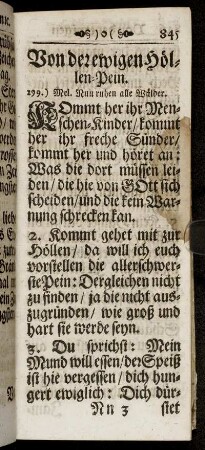 )o(
845
Von der ewigen Höl-
len-Pein.
199.) Mel. Nun ruhen alle Wälder.
KOmmt her ihr Men-
schen-Kinder/ kommt
her ihr freche Sünder/
kommt her und höret an:
Was die dort müssen lei-
den/ die hie von GOtt sich
scheiden/ und die kein War-
nung schrecken kan.
2. Kommt gehet mit zur
Höllen/ da will ich euch
vorstellen die allerschwer-
ste Pein: Dergleichen nicht
zu finden/ ja die nicht aus-
zugründen/ wie groß und
hart sie werde seyn.
3. Du sprichst: Mein
Mund will essen/ der Speiß
ist hie vergessen/ dich hun-
gert ewiglich: Dich dür-
Nn 3
stet